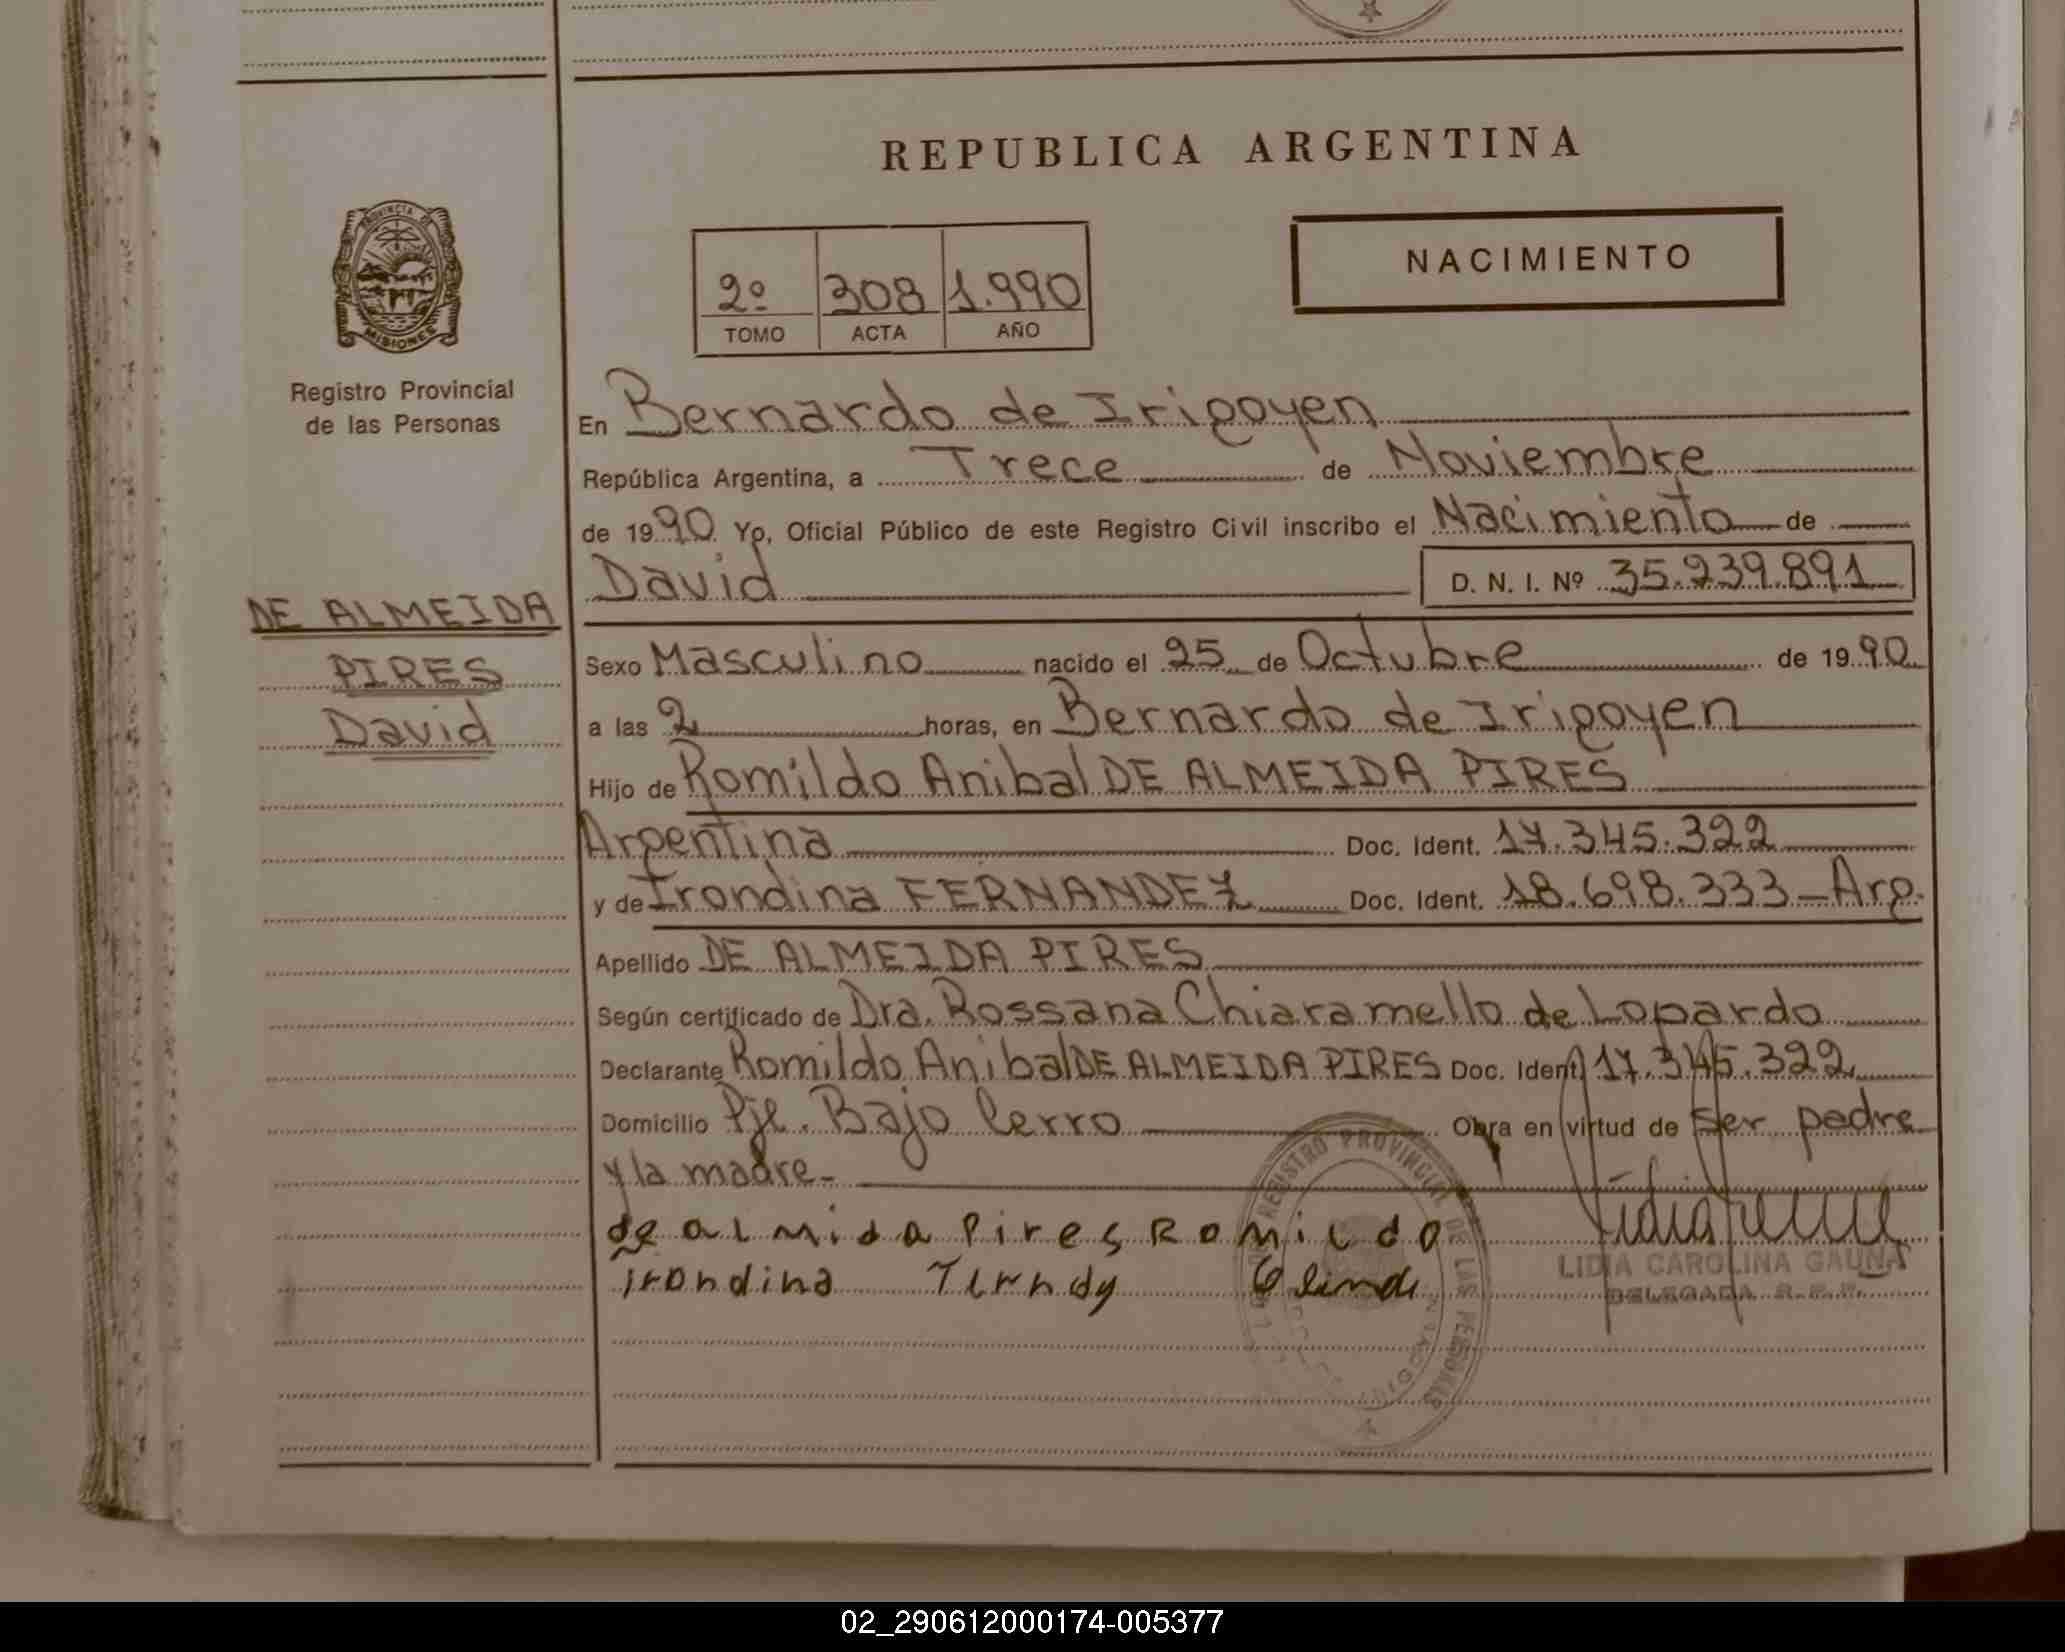 REPUBLICA ARGENTINA
NACIMIENTO
2º 308 1.990
TOMO ACTA AÑO
PROVINCIA DE
MISIONES
Registro Provincial
de las Personas
En Bernardo de Irigoyen
República Argentina, a Trece de Noviembre
de 1990 Yo, Oficial Público de este Registro Civil inscribo el Nacimiento de
David D. N. I. Nº 35.239.891
DE ALMEIDA
PIRES
David
Sexo Masculino nacido el 25 de Octubre de 1990
a las 2 horas, en Bernardo de Irigoyen
Hijo de Romildo Anibal DE ALMEIDA PIRES
Argentina Doc. Ident. 17.345.322
y de Irondina FERNANDEZ Doc. Ident. 18.698.333-Arg.
Apellido DE ALMEIDA PIRES
Según certificado de Dra. Rossana Chiaramello de Lopardo
Declarante Romildo Anibal DE ALMEIDA PIRES Doc. Ident. 17.345.322
Domicilio Pje. Bajo Cerro Obra en virtud de ser padre
y la madre-
de almida Pires Romildo
irondina
REGISTRO PROVINCIAL DE LAS PERSONAS
LIDIA CAROLINA GAUNA
DELEGADA R.P.P.
02_290612000174-005377